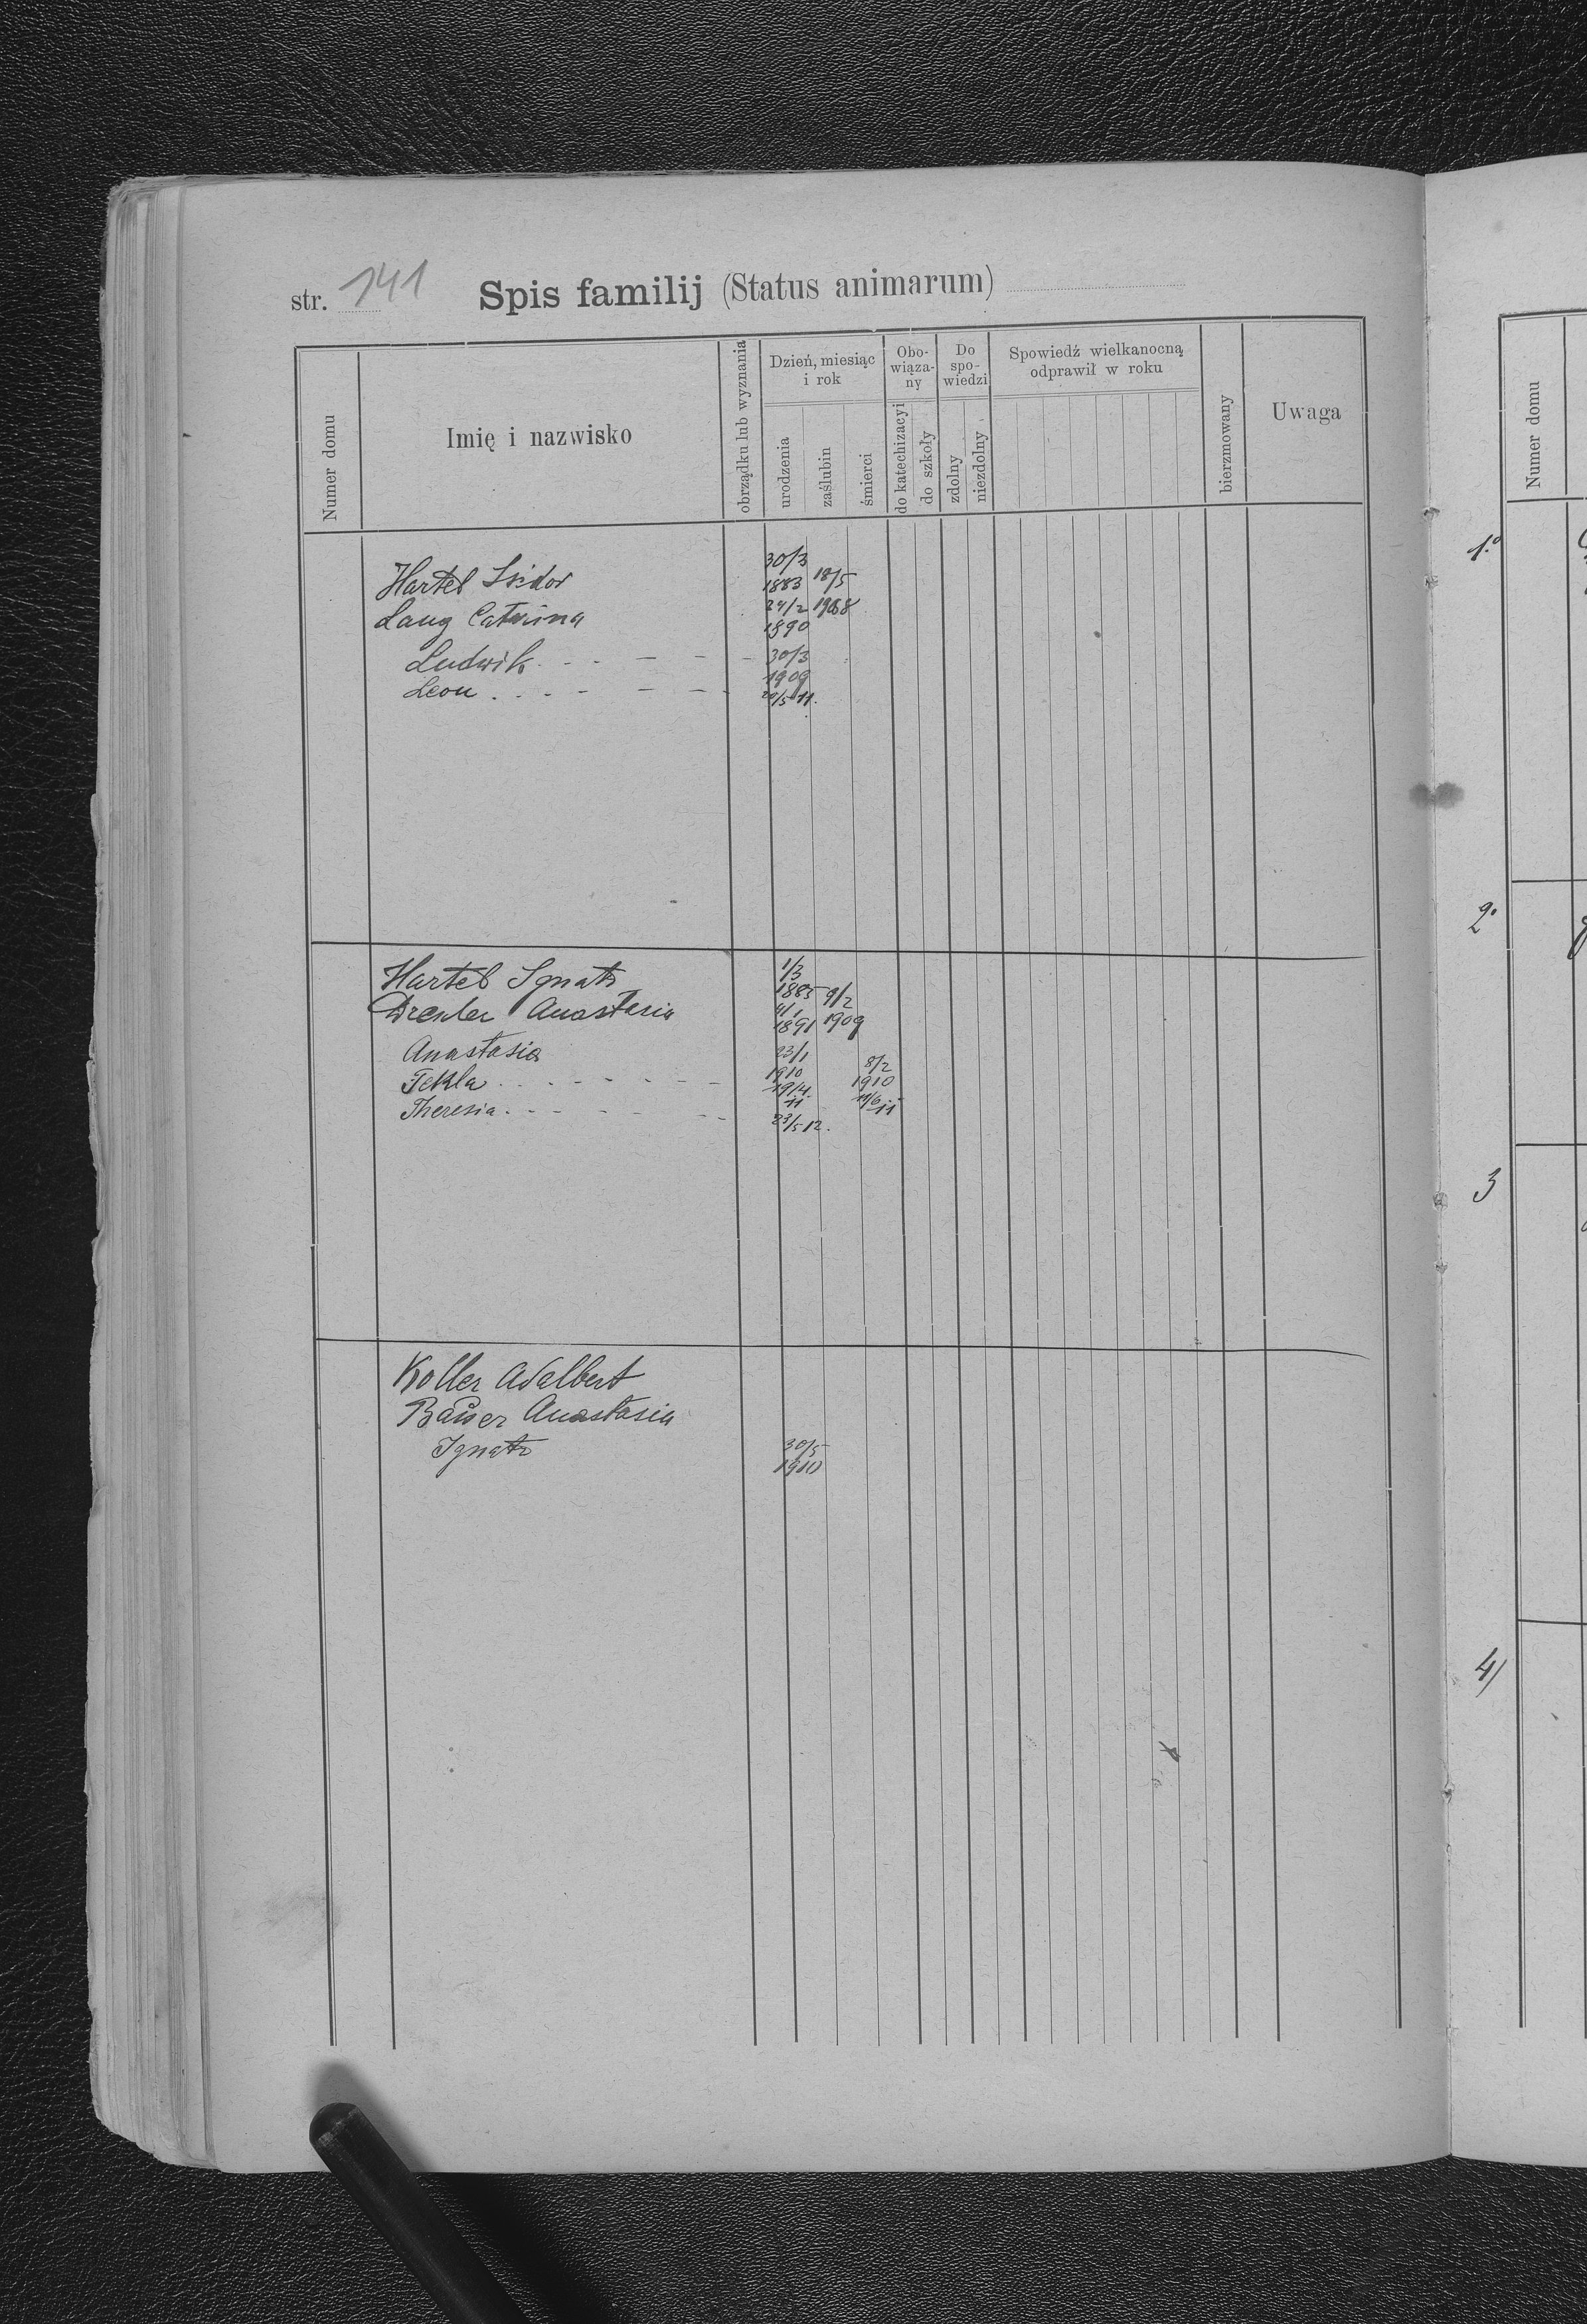 str. 141 Spis familij (Status animarum)
Numer domu
Imię i nazwisko
obrządku lub wyznania
Dzień, miesiąc i rok
urodzenia
zaślubin
śmierci
Obo-
wiąza-
ny
do katechizacyi
do szkoły
Do
spo-
wiedzi
zdolny
niezdolny
Spowiedź wielkanocną
odprawił w roku
bierzmowany
Uwaga
Hartel Isidor 30/3 1883 18/5
Lang Catarina 24/2 1890 1908
Ludwik 30/3 1909
Leon 20/5 11.
Hartel Ignatz 1/3 1885 9/2
Drexler Anastasia 1891 1909
Anastasia 23/1 1910 8/2 1910
Tekla 19/4. 11 11/6 11
Theresia 23/5 12.
Koller Adalbert
Bauer Anastasia
Ignatz 30/5 1910
Numer domu
1.º
2.º
3
4/